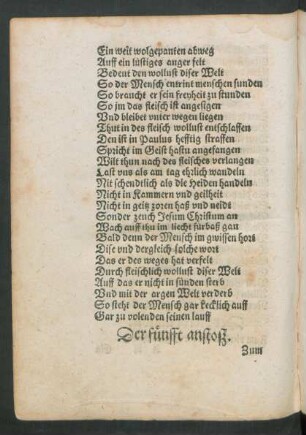 Ein weit wolgepanten abweg
Auff ein lüstiges anger felt
Bedeut den wollust diser Welt
So der Mensch entrint menschen sunden
So braucht er sein freyheit zu stunden
So jm das fleisch ist angesigen
Vnd bleibet vnter wegen liegen
Thut in des fleisch wollust entschlaffen
Den ist in Paulus hefftig straffen
Spricht im Geist hastu angefangen
Wilt thun nach des fleisches verlangen
Last vns als am tag ehrlich wandeln
Nit schendtlich als die Heiden handeln
Nicht in Kammern vnd geilheit
Nicht in geitz zoren haß vnd neidt
Sonder zeuch Jesum Christum an
Wach auff thu im liecht fürbaß gan
Bald denn der Mensch im gwissen hort
Dise vnd dergleich solche wort
Das er des weges hat verfelt
Durch fleischlich wollust diser Welt
Auff das er nicht in sünden sterb
Vnd mit der argen Welt verderb
So steht der Mensch gar kecklich auff
Gar zu volenden seinen lauff
Der fünfft anstoß.
Zum